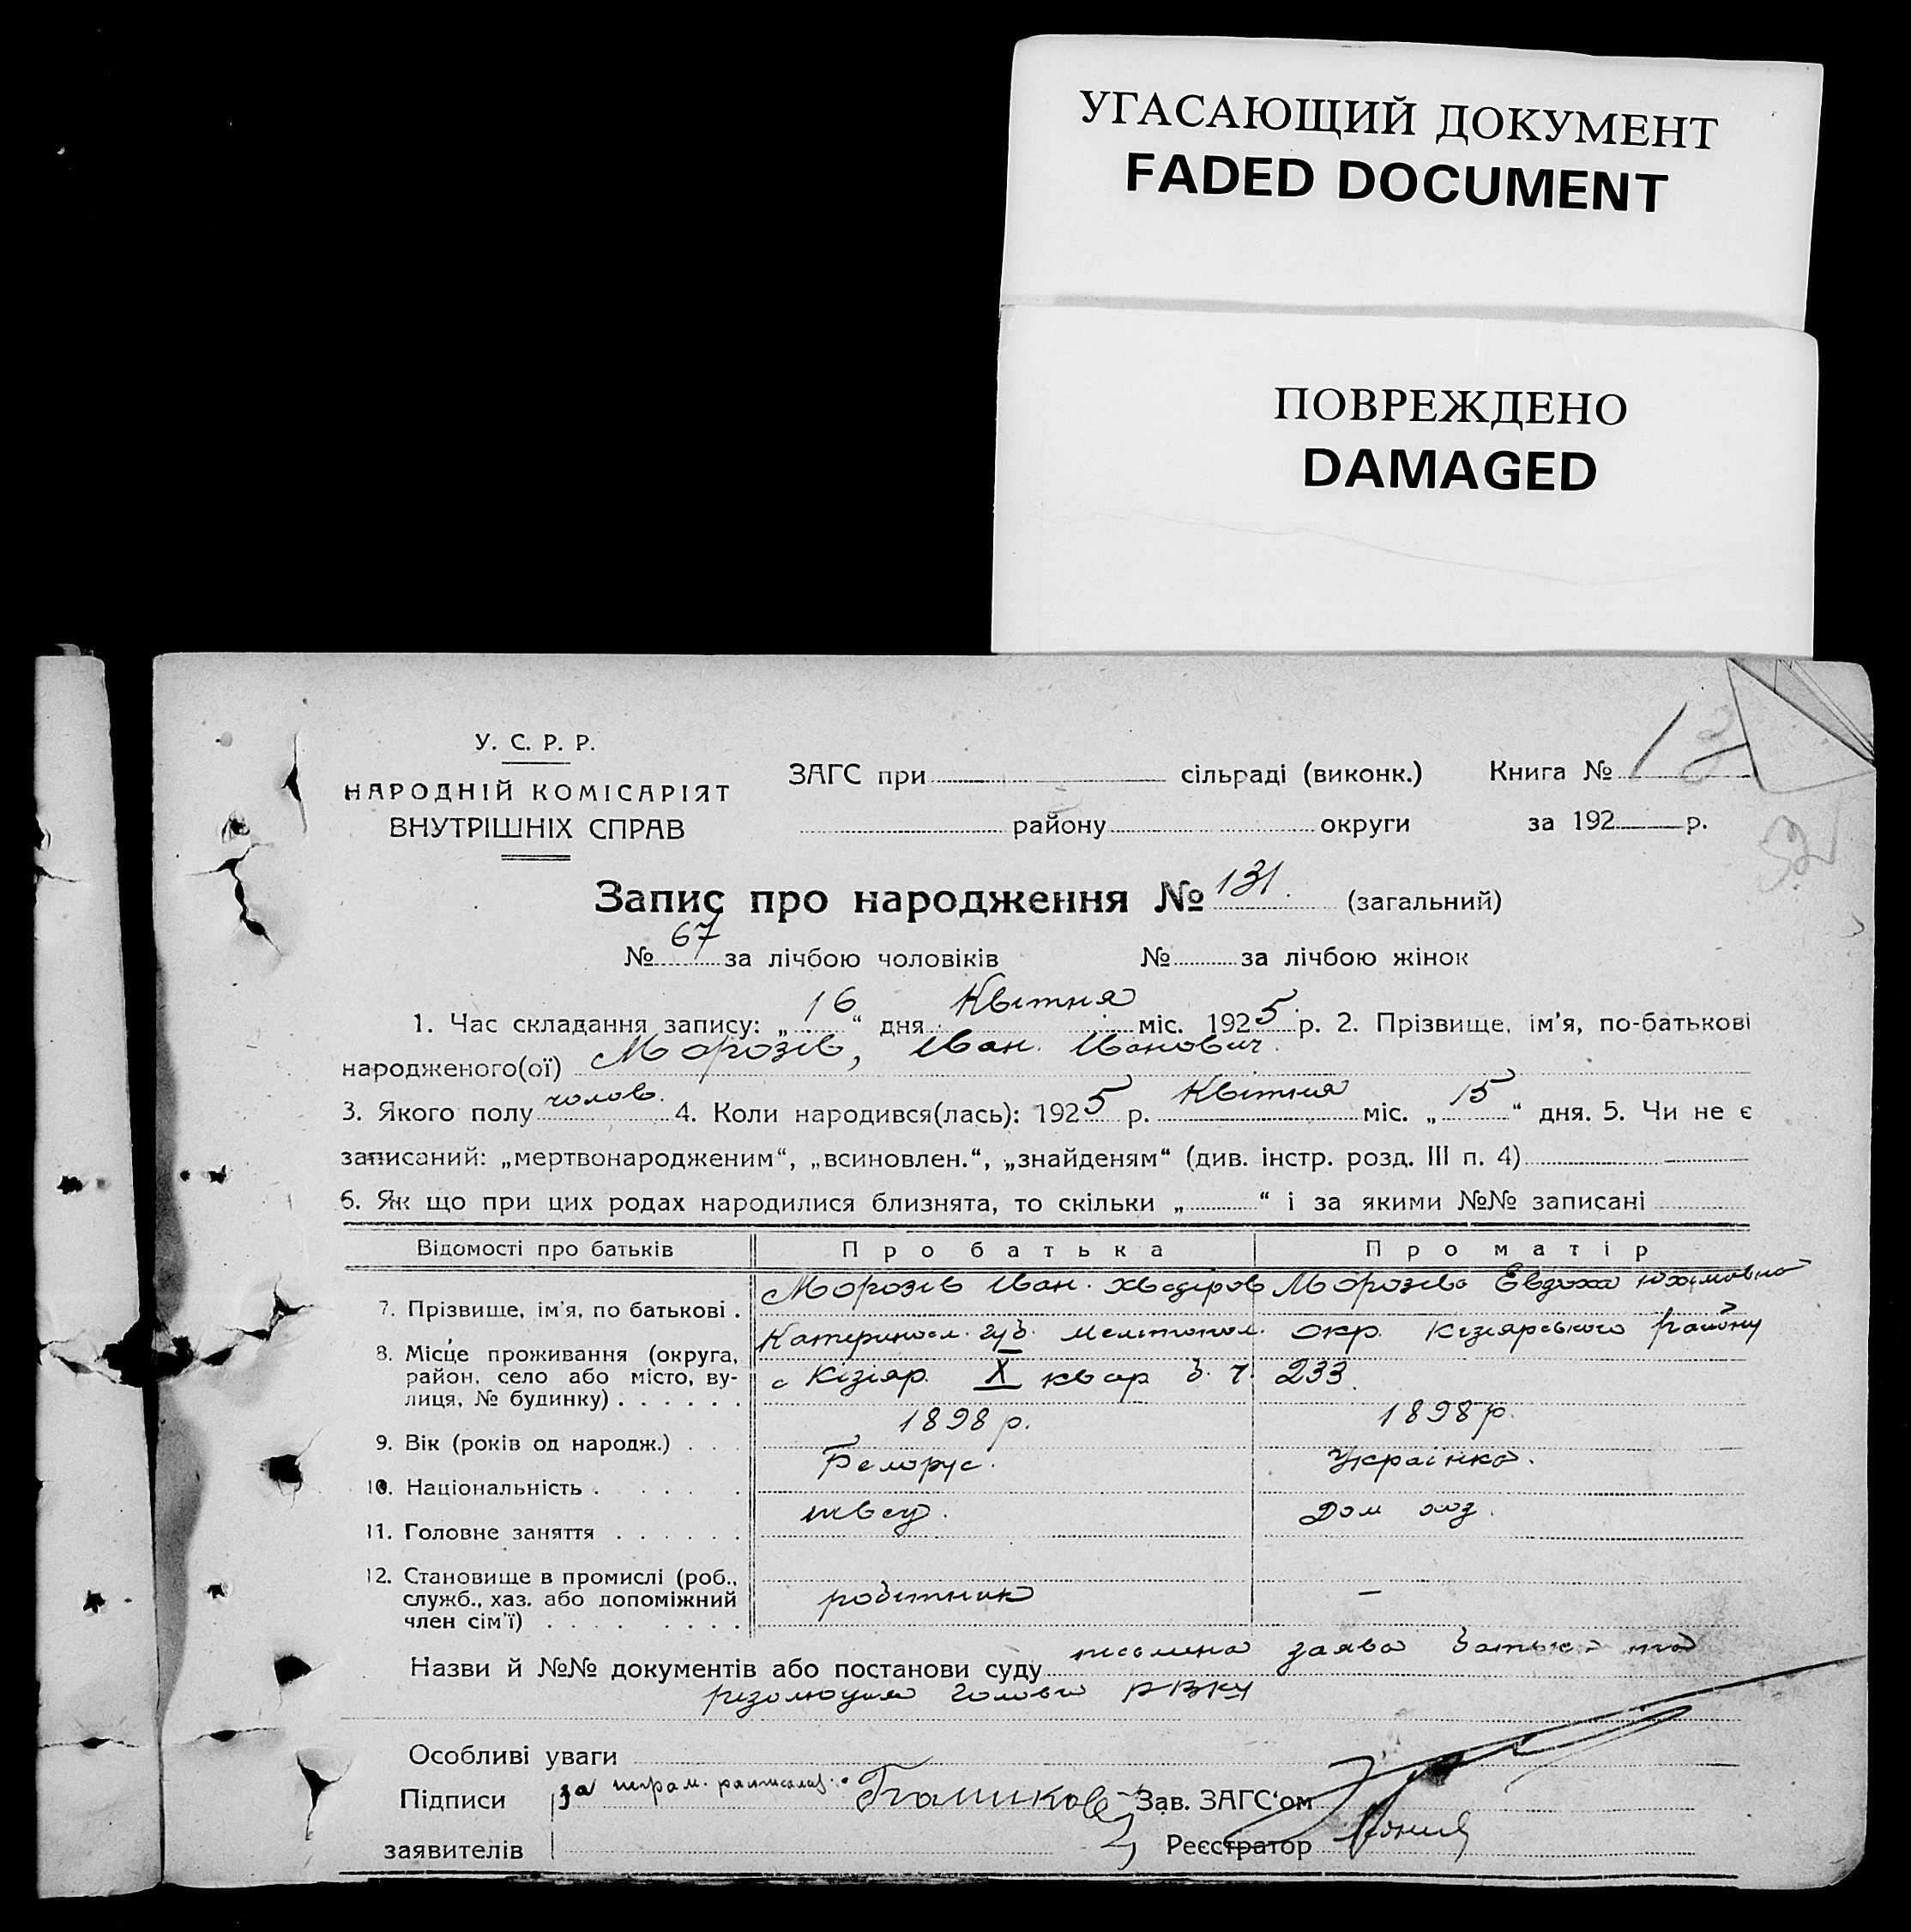 УГАСАЮЩИЙ ДОКУМЕНТ
FADED DOCUMENT
ПОВРЕЖДЕНО
DAMAGED
У. С. Р. Р.
НАРОДНІЙ КОМІСАРІЯТ
ВНУТРІШНІХ СПРАВ
ЗАГС при сільраді (виконк.) Книга №
району округи за 192 р.
Запис про народження № 131. (загальний)
№ 67 за лічбою чоловіків № за лічбою жінок
1. Час складання запису: „16“ дня Квітня міс. 1925 р. 2. Прізвище, ім'я, по-батькові
народженого(ої) Морозів, Іван Іванович.
3. Якого полу чолов. 4. Коли народився(лась): 1925 р. Квітня міс. „15“ дня. 5. Чи не є
записаний: „мертвонародженим“, „всиновлен.“, „знайденям“ (див. інстр. розд. III п. 4)
6. Як що при цих родах народилися близнята, то скільки „ “ і за якими №№ записані
Відомості про батьків Про батька Про матір
7. Прізвище, ім'я, по батькові . Морозів Іван Хведіров Морозіва Евдоха Юхимовна
8. Місце проживання (округа, район, село або місто, вулиця, № будинку) . . . . . . Катериносл. губ. Мелітопол. окр. Кізіярського району
с Кізіяр. X квар б. ч. 233.
9. Вік (років од народж.) . . . 1898 р. 1898 р.
10. Національність . . . . . Белорус. Українка.
11. Головне заняття . . . . . . швец. Дом хоз.
12. Становище в промислі (роб., служб., хаз. або допоміжний член сім'ї) . . . . . . . . робітник –
Назви й №№ документів або постанови суду письмена заява батька та
резолюция голови РВКу
Особливі уваги
Підписи за неграм. расписался Зав. ЗАГС'ом
заявителів Реєстратор